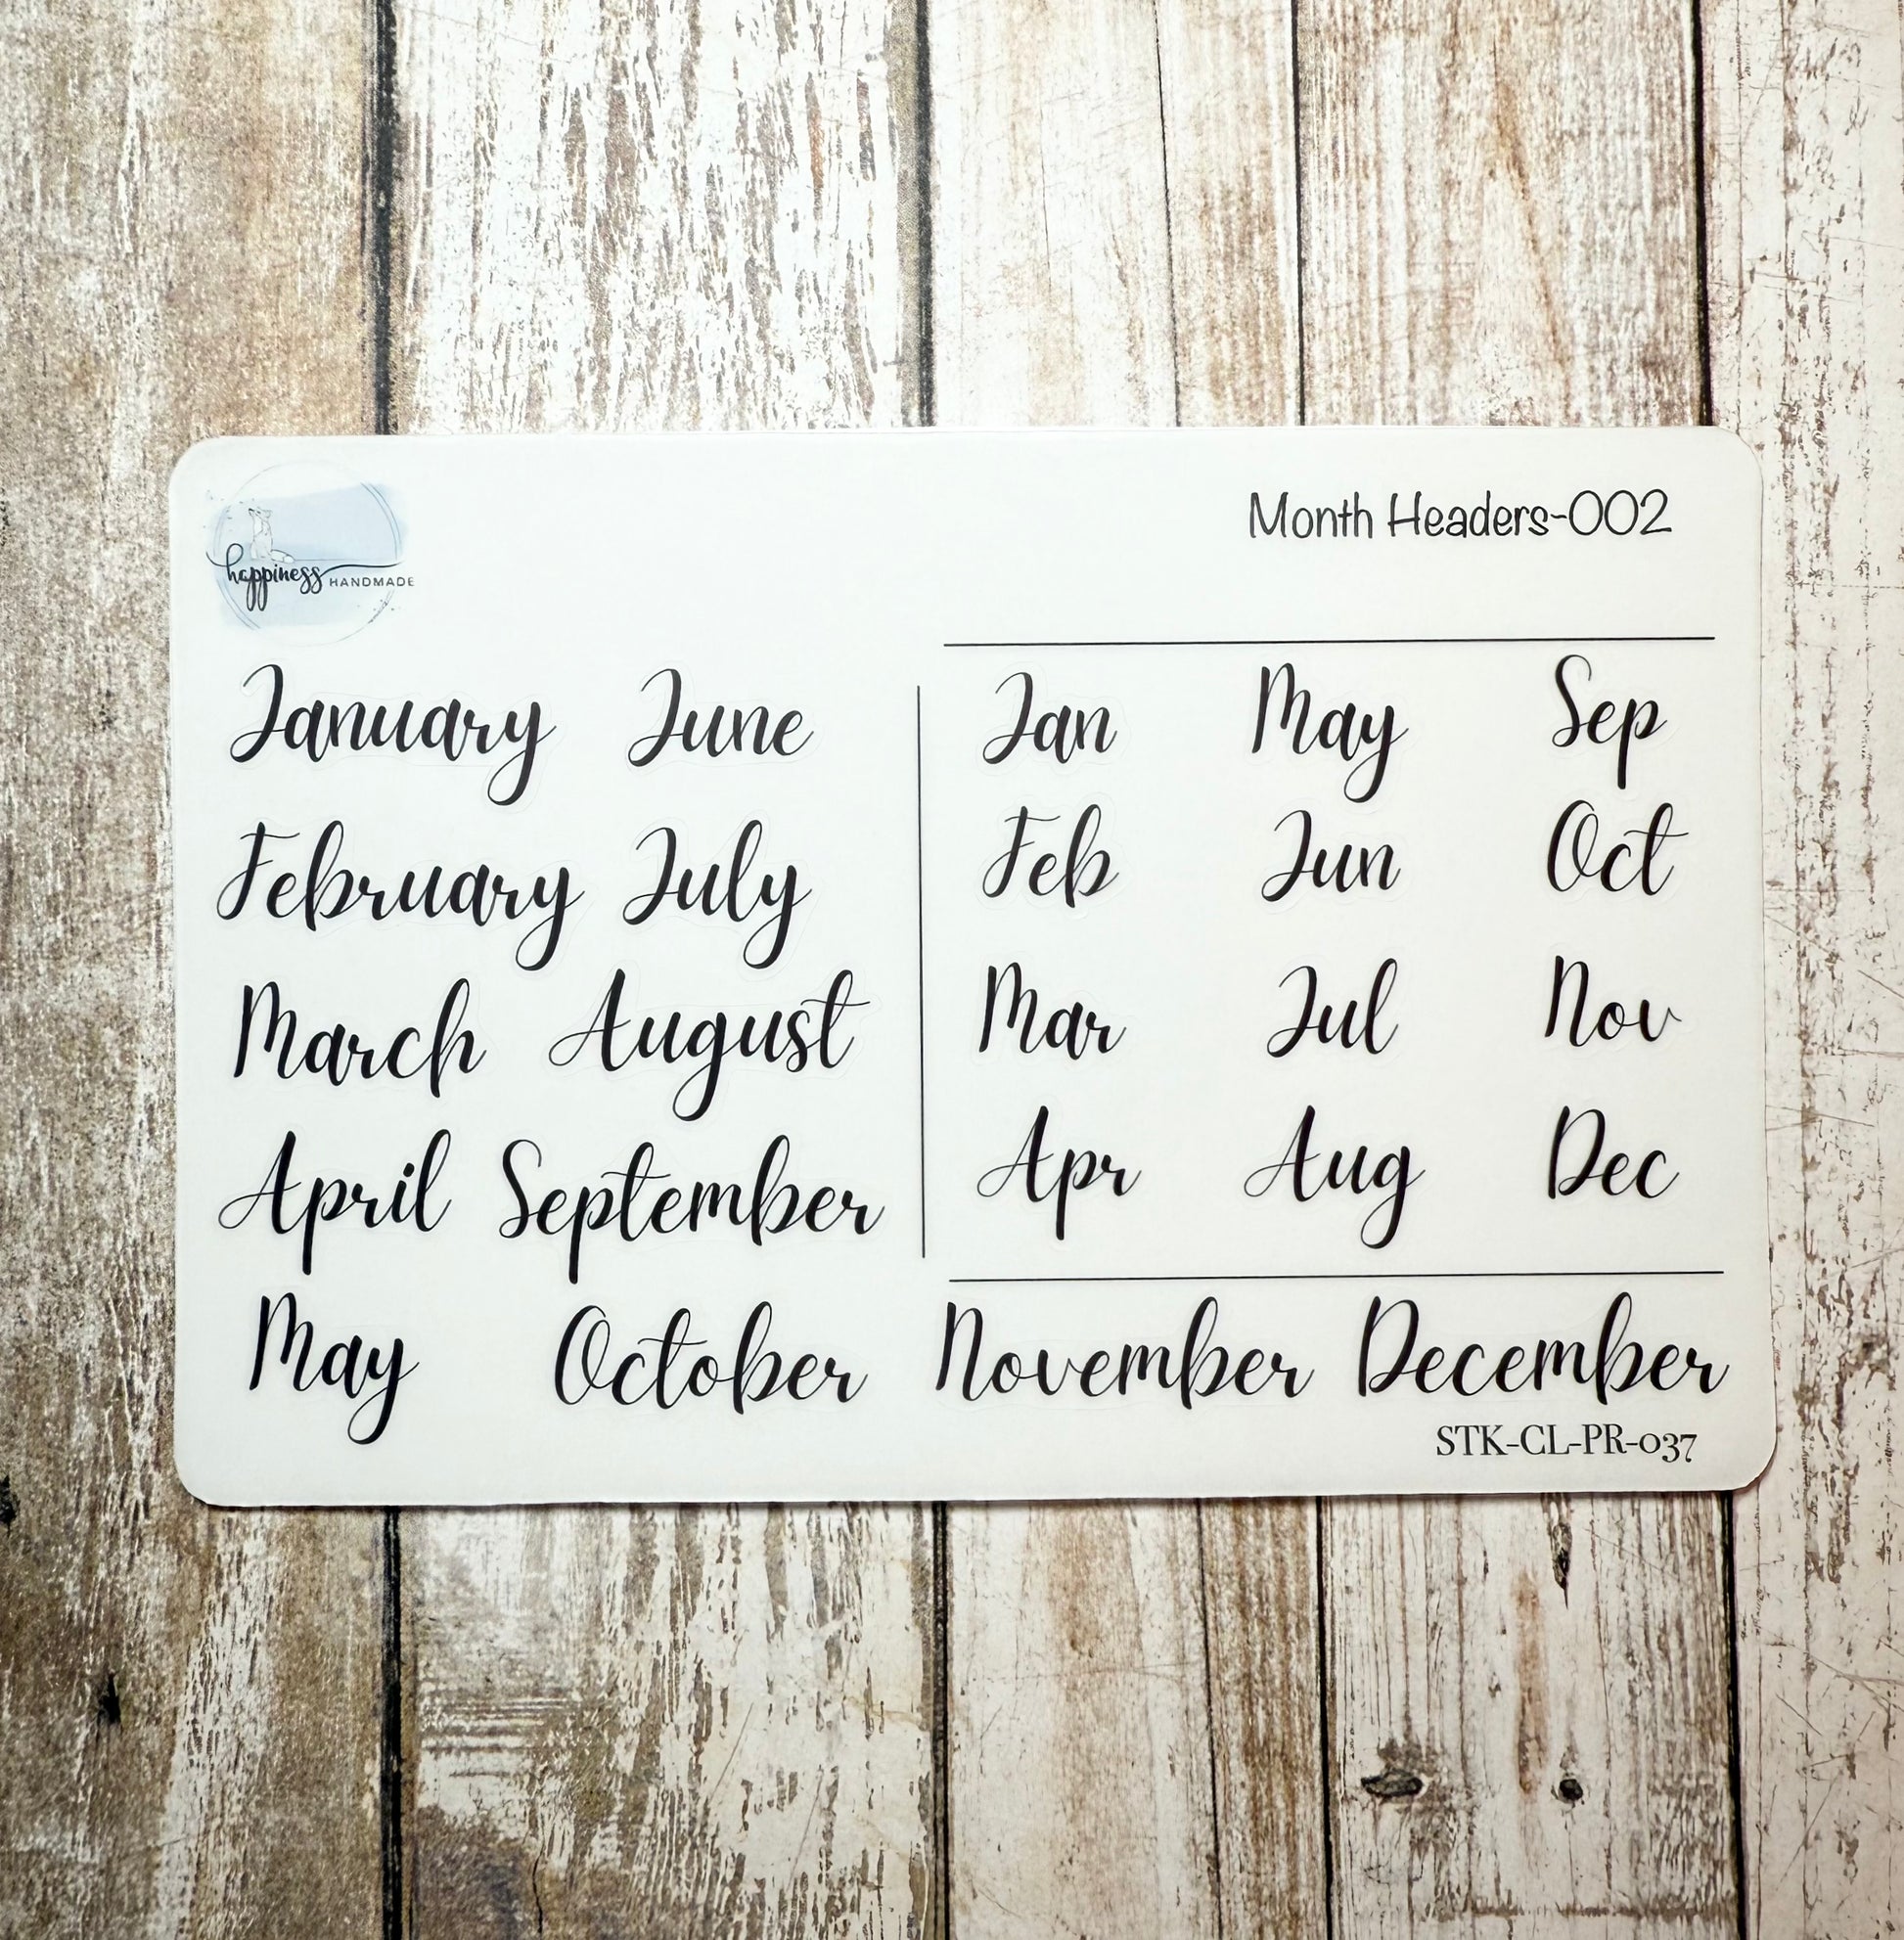 happiness HANDMADE
Month Headers-002
January June
February July
March August
April September
May October
Jan May Sep
Feb Jun Oct
Mar Jul Nov
Apr Aug Dec
November December
STK-CL-PR-037